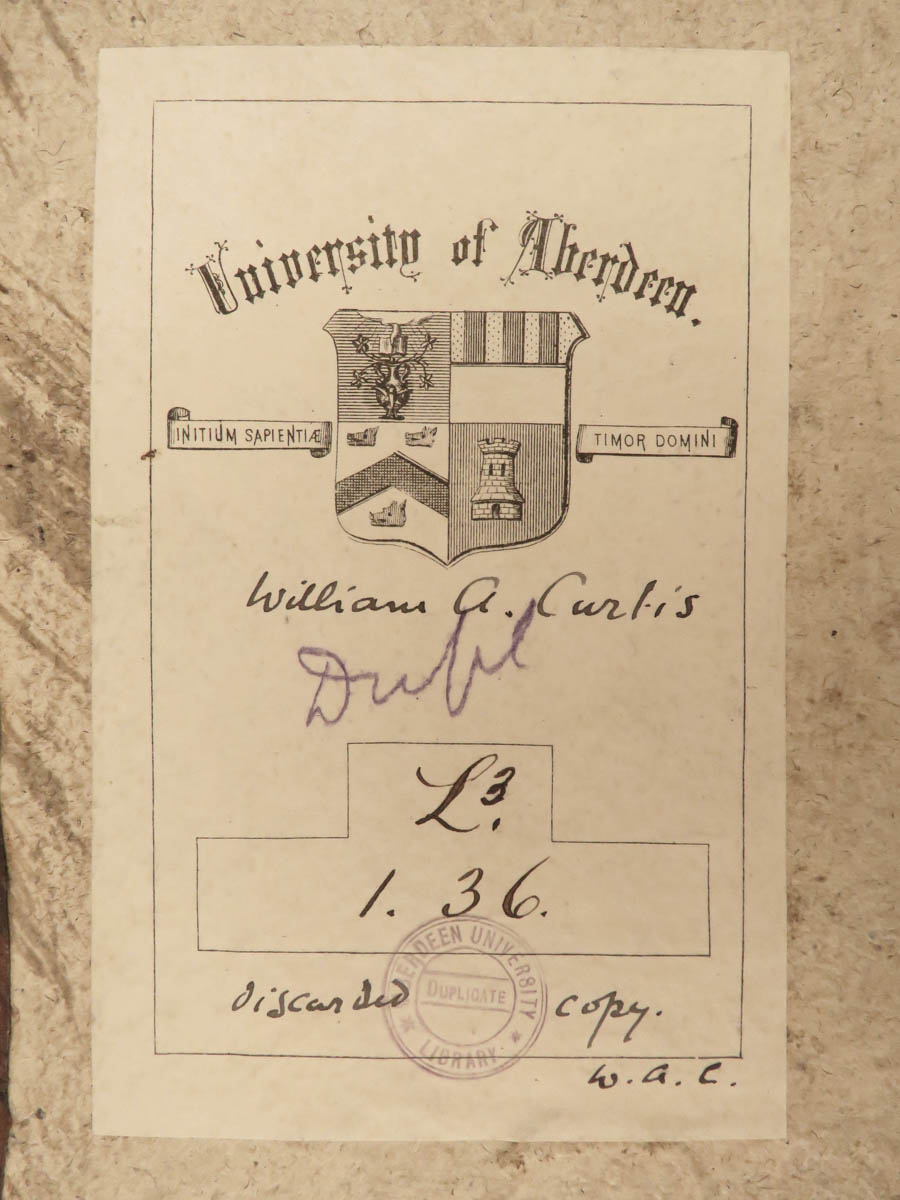 University of Aberdeen.
INITIUM SAPIENTIÆ
TIMOR DOMINI
William A. Curtis
Dupl
L³.
1. 36.
ABERDEEN UNIVERSITY
DUPLICATE
* LIBRARY. *
discarded copy.
W. A. C.